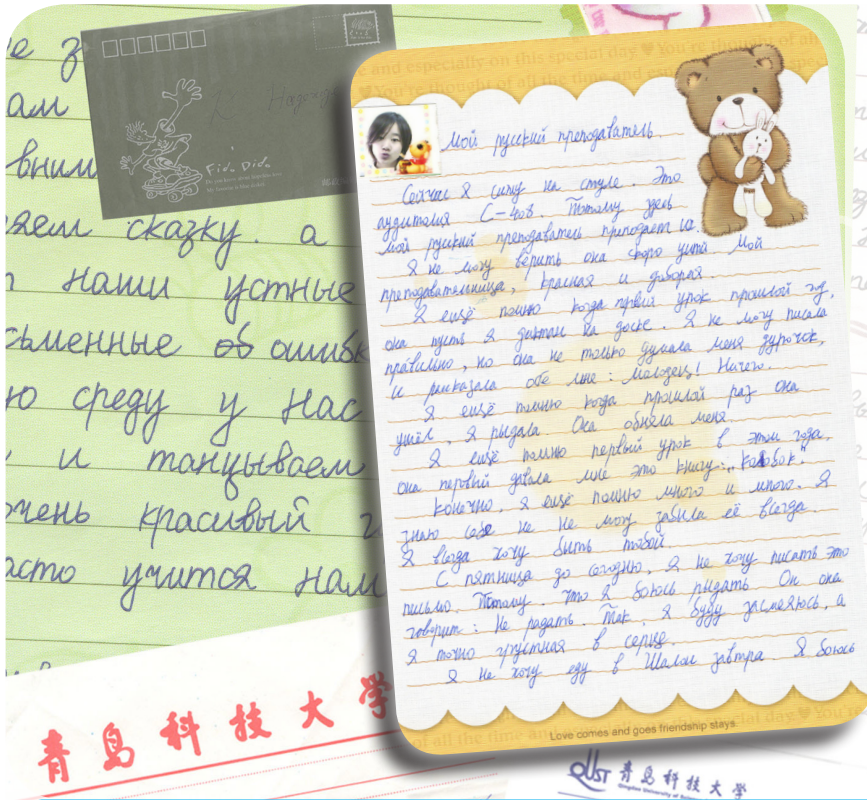 ам
вним
яем сказку. а
наши устные
сьменные об ошибк
ю среду у нас
и танцываем
очень красивый
асто учится нам
Fido Dido
青岛科技大学
e and especially on this special day ♥ You're thought of all
♥ You're thought of all the time and
Мой русский преподаватель.
Сейчас я сижу на стуле. Это
аудитория С-408. Потому здесь
мой русский преподаватель преподаёт
Я не могу верить она скоро уйти Мой
преподавательница, красная и доборая.
Я ещё помню когда првий урок прошлой год,
она пусть я диктан на доске. Я не могу писала
правильно, но она не только думала меня дурочок,
и рассказала обе мне: молодец! Ничего.
Я ещё помню когда прошлой раз она
ушёл, я рыдала Она обняла меня.
Я ещё помню первый урок в этом года,
она первый давала мне это книгу: „Колобок"
Конечно, я ещё помню много и много. Я
знаю себе не не могу забыла её всегда.
Я всегда хочу быть тобой
С пятница до сегодню, я не хочу писать это
письмо. Потому. что я боюсь рыдать Он она
говорит: не радать. Так, я буду засмеюсь, а
я точно грустная в серце.
Я не хочу еду в Шалом завтра Я боюсь
of all the time and especially on this special day. ♥ You're
Love comes and goes friendship stays.
QUST 青岛科技大学